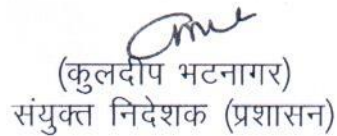 (कुलदीप भटनागर)
संयुक्त निदेशक (प्रशासन)